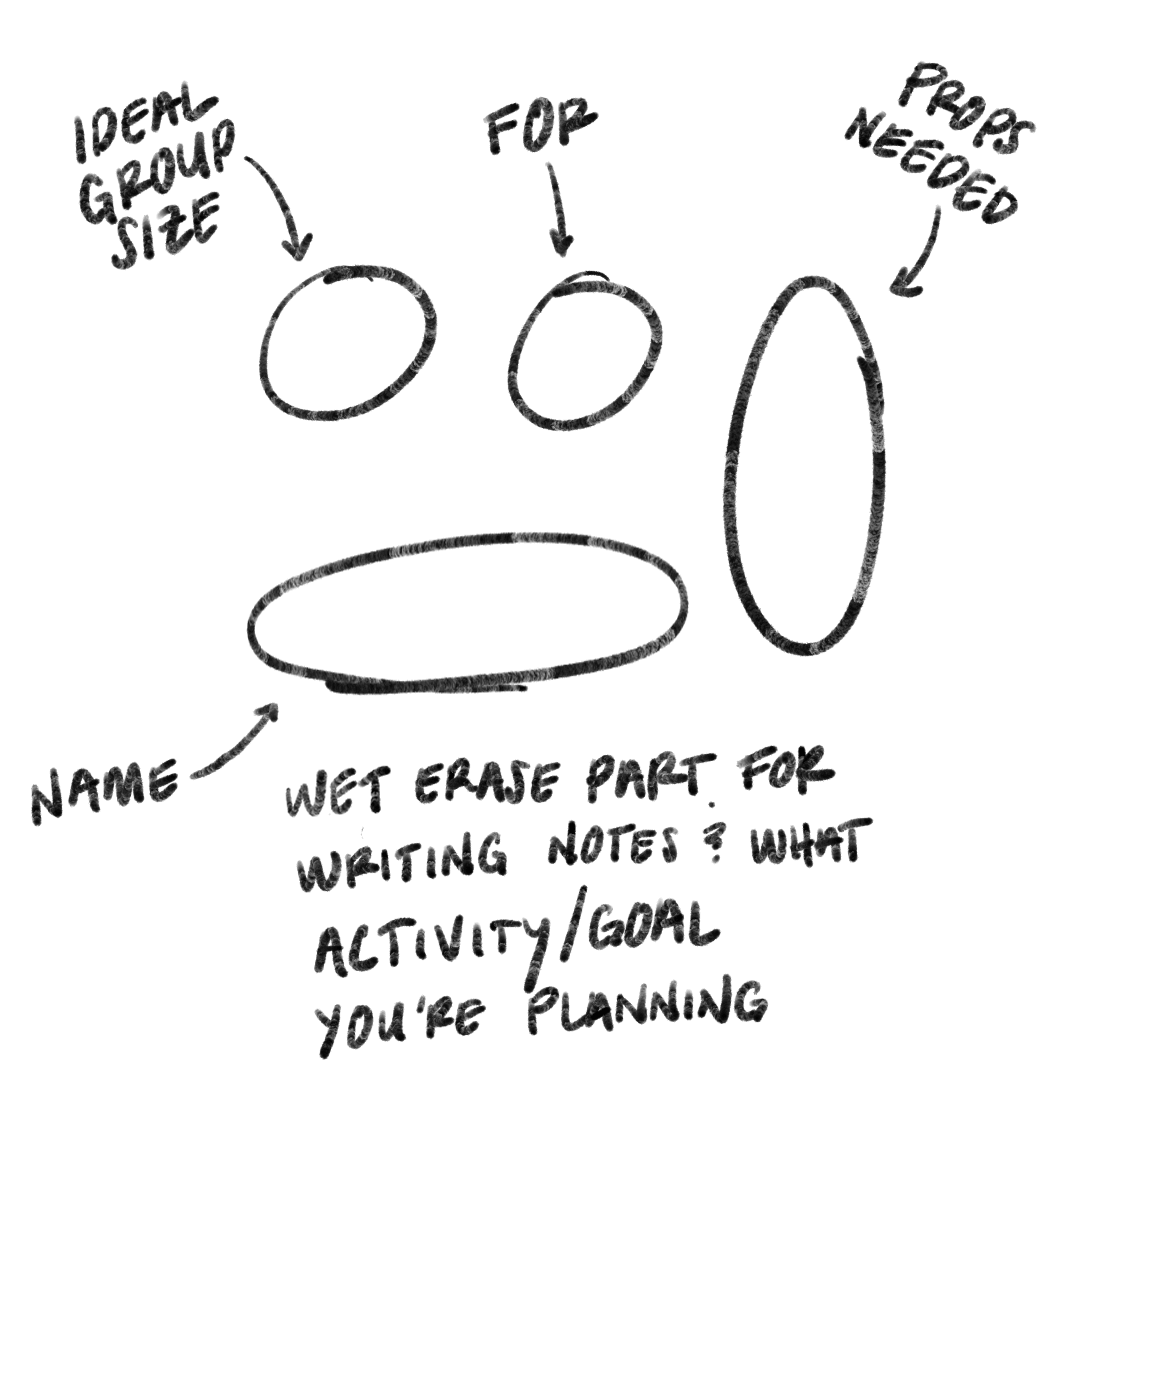 IDEAL
GROUP
SIZE
FOR
PROPS
NEEDED
NAME
WET ERASE PART FOR
WRITING NOTES? WHAT
ACTIVITY/GOAL
YOU'RE PLANNING